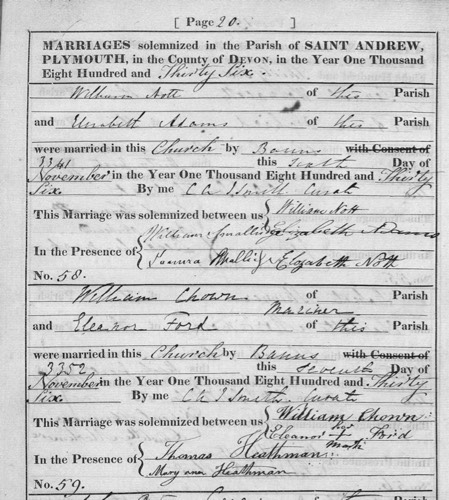 [ Page 20. ]
MARRIAGES solemnized in the Parish of SAINT ANDREW,
PLYMOUTH, in the County of DEVON, in the Year One Thousand
Eight Hundred and Thirty Six.
William Nott of this Parish
and Elizabeth Adams of this Parish
were married in this Church by Banns with Consent of
3341 this sixth Day of
November in the Year One Thousand Eight Hundred and Thirty
Six By me C A J Smith Curate
This Marriage was solemnized between us { William Nott
Elizabeth Adams
In the Presence of { William
Elizabeth Nott
No. 58.
William Chown of Parish
Mariner
and Eleanor Ford of this Parish
were married in this Church by Banns with Consent of
3352 this seventh Day of
November in the Year One Thousand Eight Hundred and Thirty
Six By me C A J Smith Curate
This Marriage was solemnized between us { William Chown
Eleanor her Ford
mark
In the Presence of { Thomas Heathman
Mary ann Heathman
No. 59.